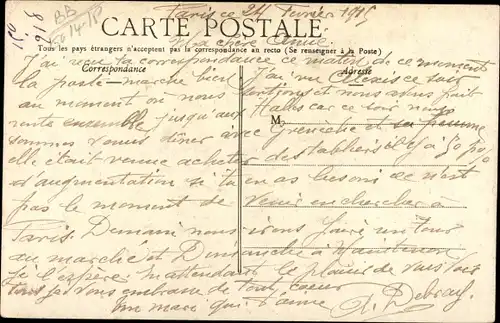 BB
CARTE POSTALE
Paris ce 24 Février 1918
Tous les pays étrangers n'acceptent pas la correspondance au recto (Se renseigner à la Poste)
Ma chère Aimée
J'ai reçu ta correspondance ce matin de ce moment
Correspondance Adresse
la poste marche bien J'ai vu ce soir
au moment où nous sortions et nous avons fait
route ensemble jusqu'aux Halles car ce soir nous
M
sommes venus dîner avec et sa femme
elle était venue acheter des tabliers il y a 50 p%
d'augmentation si tu en as besoin ce n'est
pas le moment de venir en chercher à
Paris. Demain nous irons faire un tour
au marché et Dimanche à Maintenon
je l'espère m'attendant le plaisir de vous voir
tous je vous embrasse de tout coeur
Ton mari qui t'aime A. Debray